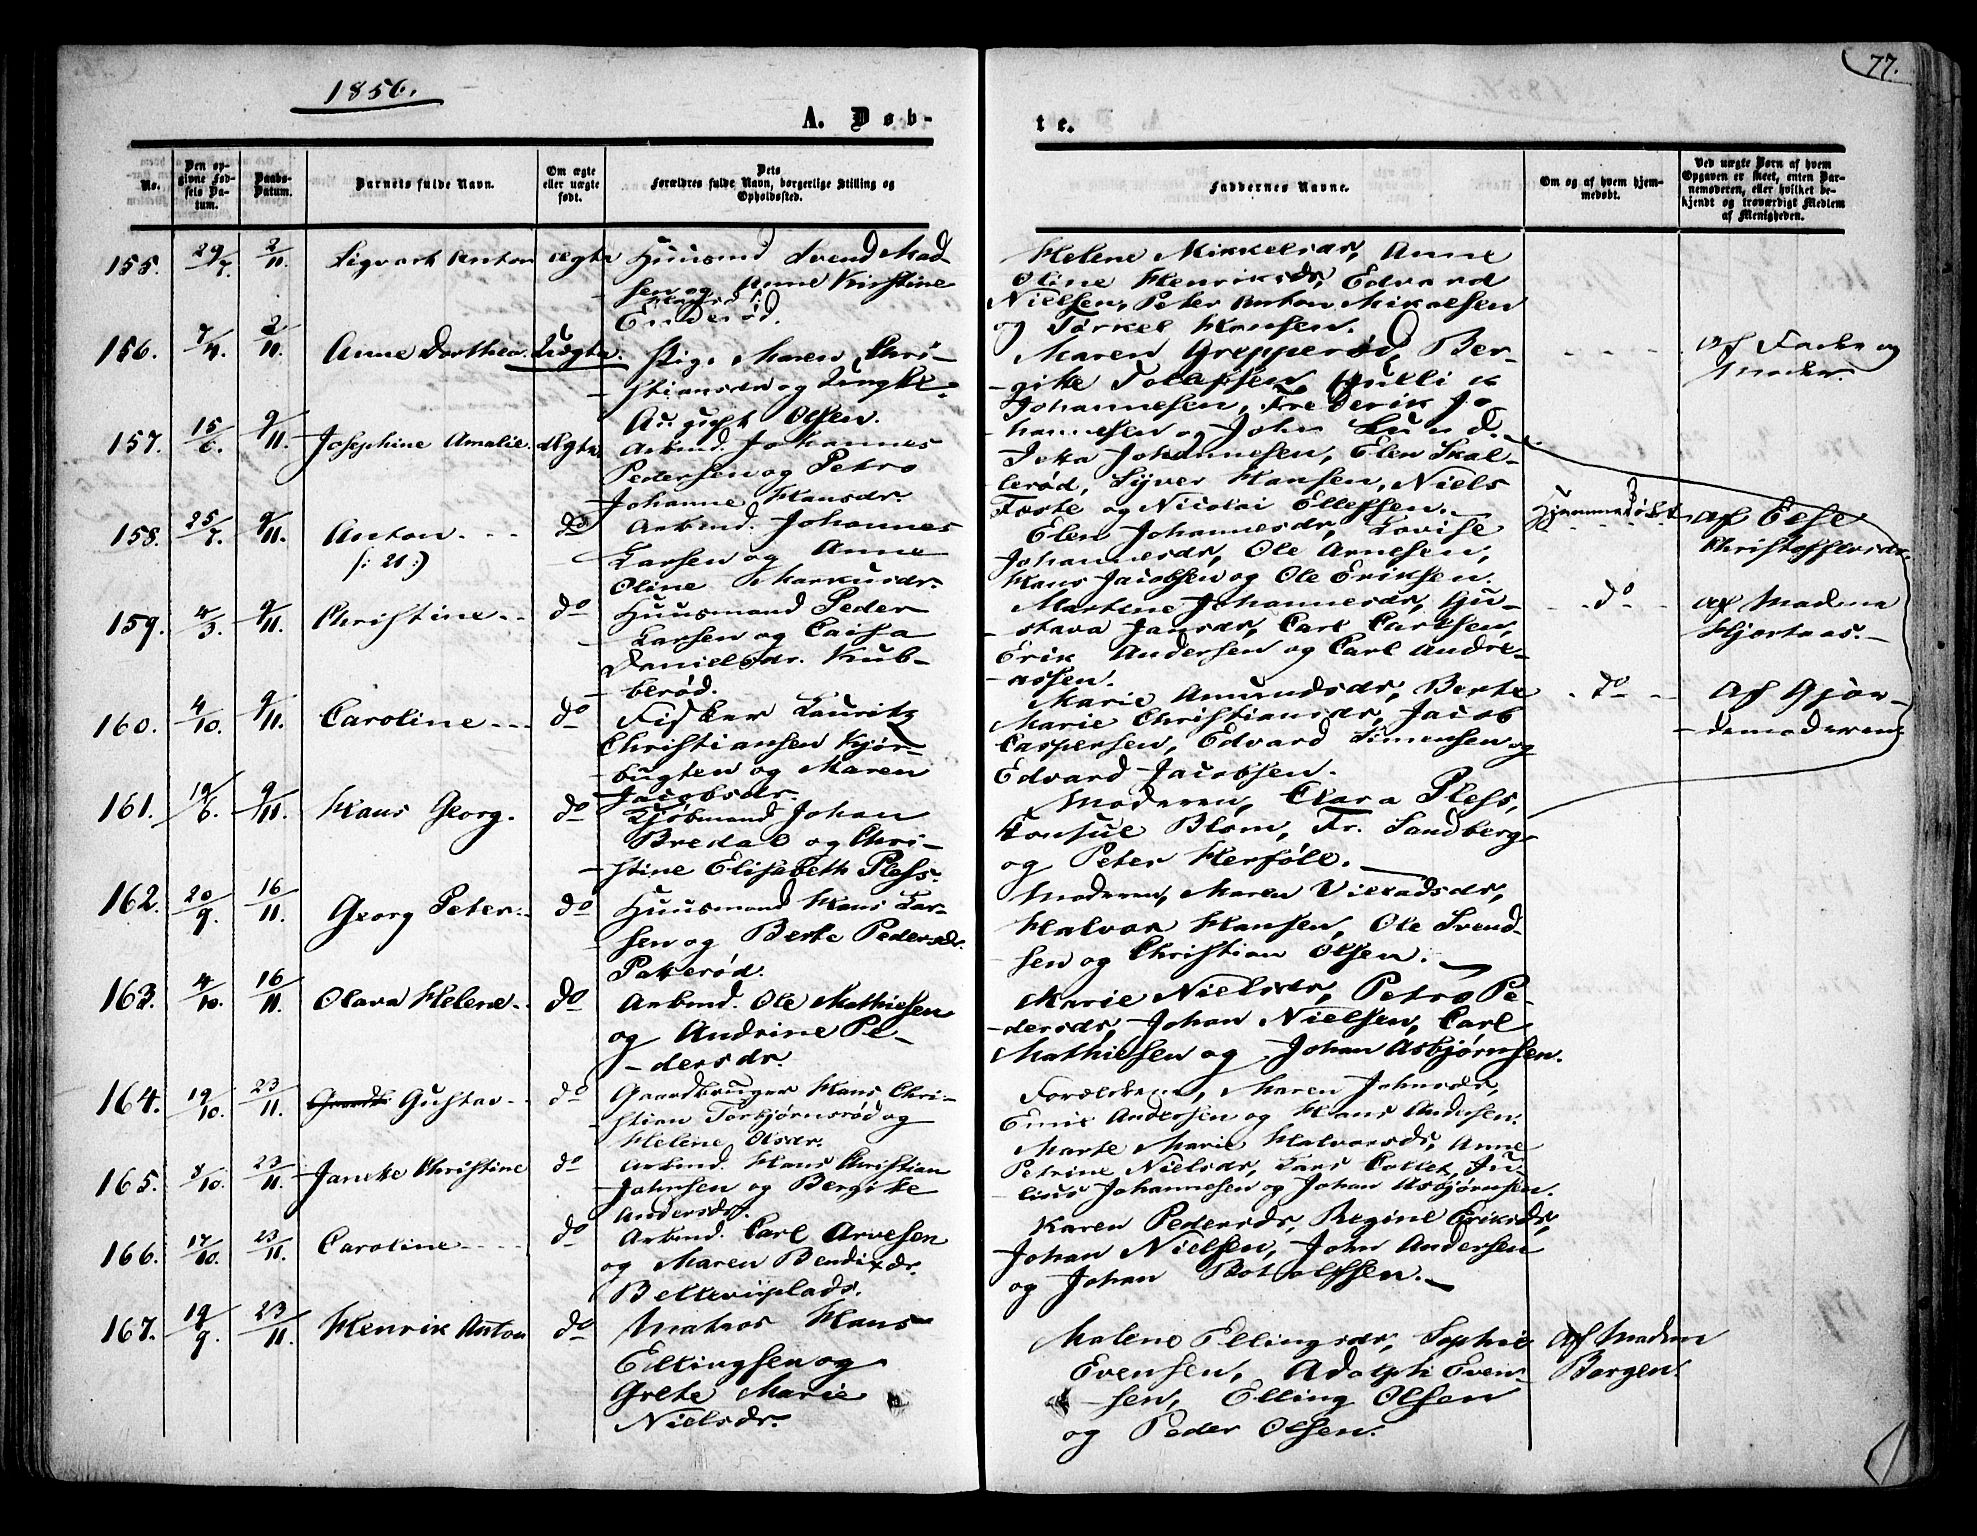 1856.
77.
A. Døb-
te.
No.
Den op-
givne Fød-
sels Da-
tum.
Daabs-
Datum.
Barnets fulde Navn.
Om ægte
eller uægte
født.
Dets
Forældres fulde Navn, borgerlige Stilling og
Opholdssted.
Faddernes Navne.
Om og af hvem hjem-
medøbt.
Ved uægte Børn af hvem
Opgaven er skeet, enten Bar-
nemoderen, eller hvilket be-
kjendt og troværdigt Medlem
af Menigheden.
155. 29/7. 2/11. Sigvart Anton ægte Huusmd Svend Mad-
sen og Anne Kirstine
Enderød.
Helene Mikkelsdr, Anne
Oline Henriksdr, Edvard
Nielsen, Peter Anton Mikalsen
og Tørkel Hansen.
156. 7/4. 2/11. Anne Dorthea. Uægte. Pig. Maren Chri-
stiansdr og Ungke.
August Olsen.
Maren Grepperød, Ber-
-gitte Tolafsen,
Johannesen, Frederik Jo-
hannesen og John Lund.
Af Fader og
Moder.
157. 15/6. 9/11. Josephine Amalie. Ægte Arbmd. Johannes
Pedersen og Petro
Johanne Hansdr.
Jetta Johannesen, Elen Skal-
lerød, Syver Hansen, Niels
Foste og Nicolai Ellefsen.
158. 25/7. 9/11. Anton. do Arbmd. Johannes
(: 21 :)
Larsen og Anne
Oline Markusdr.
Elen Johannesdr, Lovise
Johannesdr, Ole Arnesen,
Hans Jacobsen og Ole Eriksen.
Hjemmedøbt af Else
Christoffersdr.
159. 4/3. 9/11. Christine do Huusmand Peder
Larsen og Caisa
Danielsdr. Kub-
berød.
Martine Johannesdr, Gu-
stava Jansdr, Carl Carlsen,
Erik Andersen og Carl Andre-
assen.
do af Madme
Hjortaas.
160. 4/10. 9/11. Caroline do Fisker Lauritz
Christiansen Kjør-
bugten og Maren
Jacobsdr.
Marie Amundsdr, Berte
Marie Christiansdr, Jacob
Caspersen, Edvard Simensen og
Edvard Jacobsen.
do Af Gjor-
demoderen.
161. 19/6. 9/11. Hans Georg. do Kjøbmand Johan
Bredal og Chri-
stine Elisabeth Pless.
Moderen, Clara Pless,
Konsul Blom, Fr. Sandberg
og Peter Herføll.
162. 20/9. 16/11. Georg Peter. do Huusmand Hans Lar-
sen og Berte Pedersdr.
Pakerød.
Moderen, Maren Villadsdr,
Halvor Hansen, Ole Svend-
sen og Christian Olsen.
163. 4/10. 16/11. Olava Helene do Arbmd. Ole Mathiesen
og Andrine Pe-
-dersdr.
Marie Nielsdr, Petra Pe-
-dersdr, Johan Nielsen, Carl
Mathiesen og Johan Asbjørnsen.
164. 19/10. 23/11. Gustav do Gaardbruger Hans Chri-
stian Torbjørnsrød og
Helene Olsdr.
Forældrene, Maren Johnsdr,
Emil Andersen og Hans Andersen.
165. 8/10. 23/11. Jancke Christine do Arbmd. Hans Christian
Johnsen og Bergitte
Andersdr.
Marte Marie Halvorsdr, Anne
Petrine Nielsdr, Lars Collet, Ju-
lius Johannesen og Johan Asbjørnsen.
166. 17/10. 23/11. Caroline do Arbmd. Carl Arvesen
og Maren Bendixdr.
Bellevüplads.
Karen Pedersdr, Regine Eriksdr,
Johan Nielsen, John Andersen
og Johan Botolfsen.
167. 19/9. 23/11. Henrik Anton do Matros Hans
Ellingsen og
Grete Marie
Nielsdr.
Malene Ellingsdr, Sophie
Evensen, Adolph Even-
-sen, Elling Olsen
og Peder Olsen.
Af Madm
Borgen.